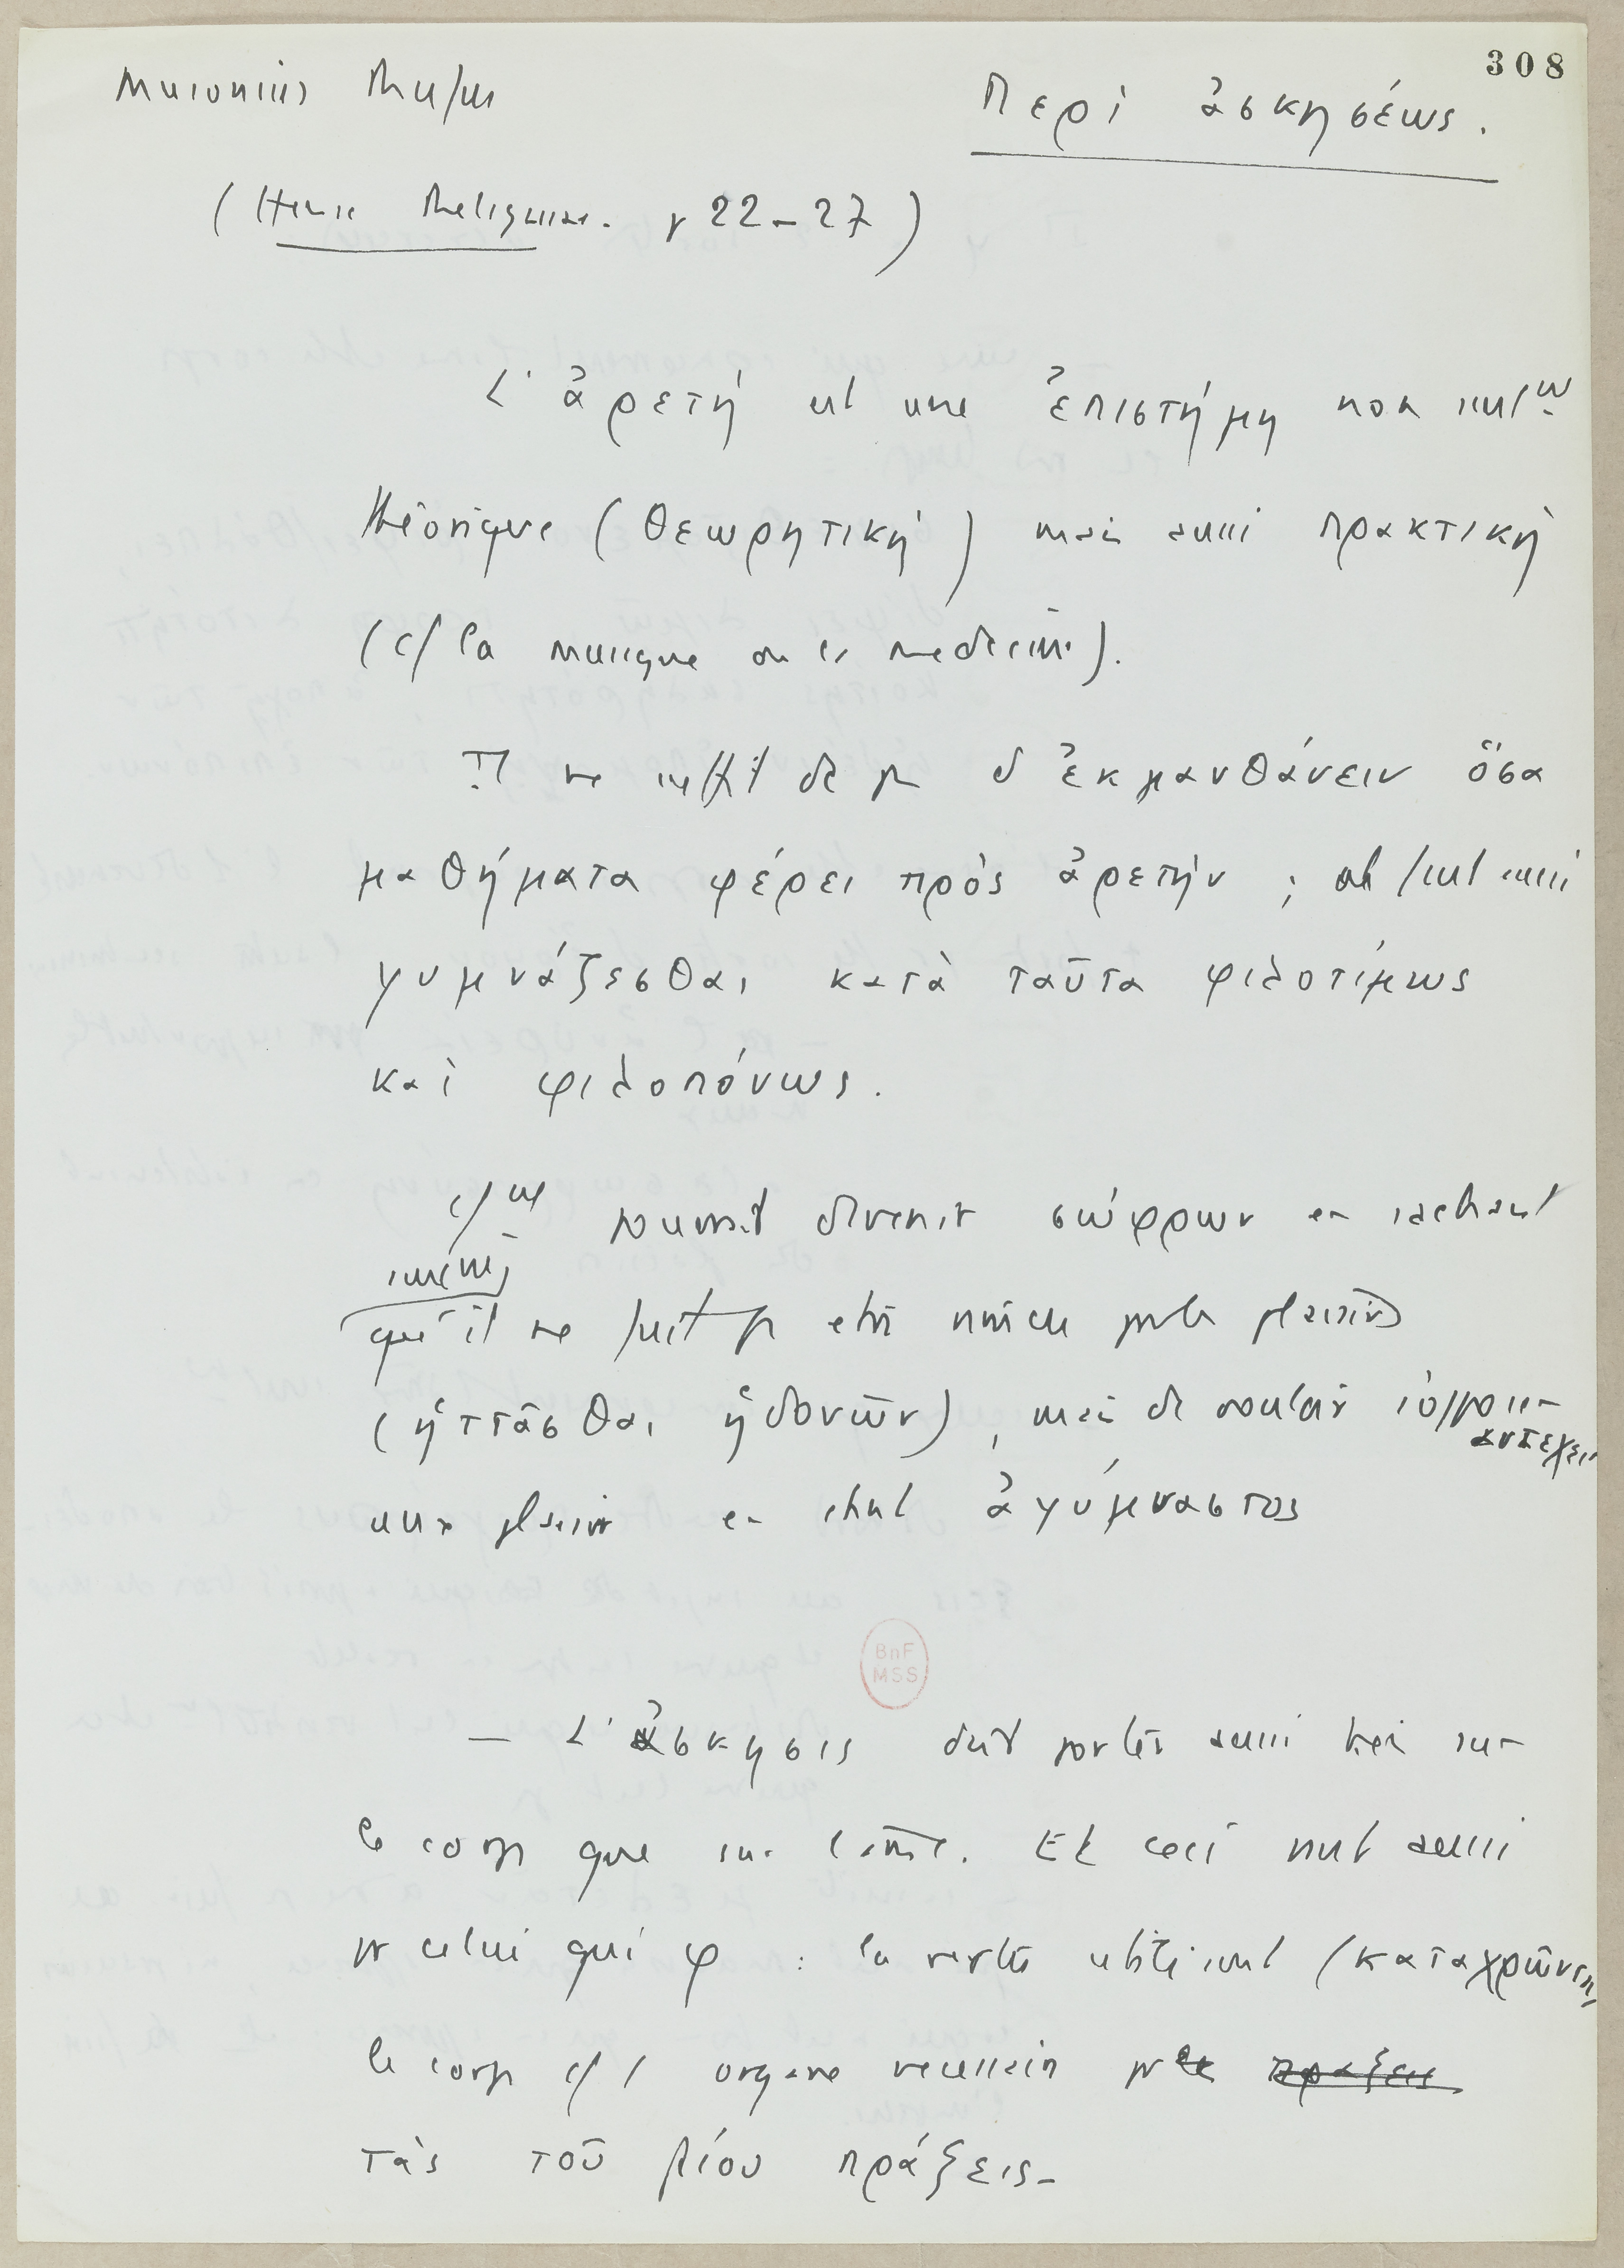 308
Musonius Rufus
Περὶ ἀσκησέως.
(Hense Reliquiae. p 22-27)
L'ἀρετή est une ἐπιστήμη non seulᵗ
théorique (θεωρητική) mais aussi πρακτική
(cf la musique ou la médecine).
Il ne suffit dc pas d'ἐκμανθάνειν ὅσα
μαθήματα φέρει πρὸς ἀρετήν ; il faut aussi
γυμνάζεσθαι κατὰ ταῦτα φιλοτίμως
καὶ φιλοπόνως.
pourrait devenir σώφρων en sachant
qu'il ne faut pas être vaincu par les plaisirs
(ἡττᾶσθαι ἡδονῶν), mais
αντεχειν
aux plaisirs en étant ἀγύμναστος
BnF
MSS
— L'ἄσκησις doit porter aussi bien sur
le corps que sur l'âme. Et ceci vaut aussi
pr celui qui φ : la vertu utilisant (καταχρῶνται
le corps organe nécessaire pr πραξεις
τὰς τοῦ βίου πράξεις-